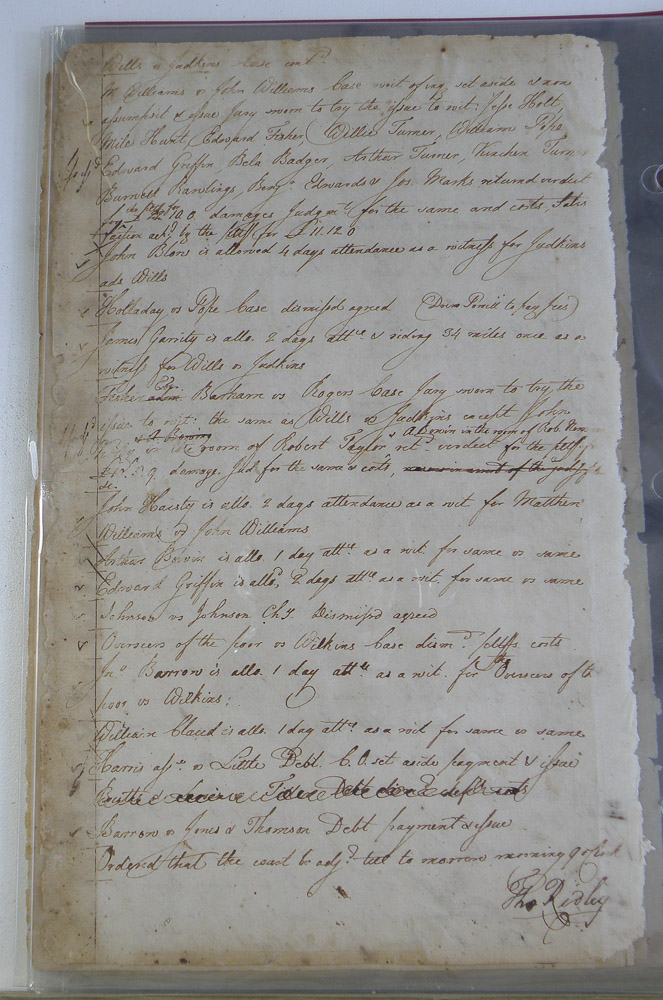 Wills vs Judkins Case contd
M Williams vs John Williams Case writ of inq. set aside & non
assumpsit & issue Jury sworn to try the issue to wit: Jesse Holt,
Mile Hunt, Edward Fisher, Willie Turner, William Pope,
Edward Griffin, Bela Badger, Arthur Turner, Kinchen Turner
Burwell Rawlings, Benj. Edwards & Jos. Marks returned verdict
for 10.0 damages Judgmt for the same and costs. Satis
faction ackd by the pltff for £11.12.0
John Blow is allowed 4 days attendance as a witness for Judkins
ads Wills
Holladay vs Pope Case dismissed agreed (Drew Powell to pay fees)
James Garrity is allo. 2 days attce & riding 34 miles once as a
witness for Wills vs Judkins
Fisher Barham vs Rogers Case Jury sworn to try the
issue to wit: the same as Wills vs Judkins except John
in the room of Rob
in the room of Robert Taylor retd verdict for the pltff
damage, Jud for the same & costs,
John Haisty is allo. 2 days attendance as a wit. for Matthew
Williams vs John Williams
Arthur Bowin is allo. 1 day attce as a wit. for same vs same
Edward Griffin is allod 2 days attce as a wit. for same vs same
Johnson vs Johnson Chy. Dismissd agreed
Overseers of the poor vs Wilkins Case dismd pltffs. costs
Jno Barrow is allo. 1 day attce as a wit. for Overseers of the
poor vs Wilkins.
William Claud is allo. 1 day attce as a wit for same vs same
Harris asse vs Little Debt. C.O. set aside payment & issue
Barrow vs Jones & Thomson Debt payment & issue
Ordered that the court be adjd till to morrow morning 9 o
Tho Ridley